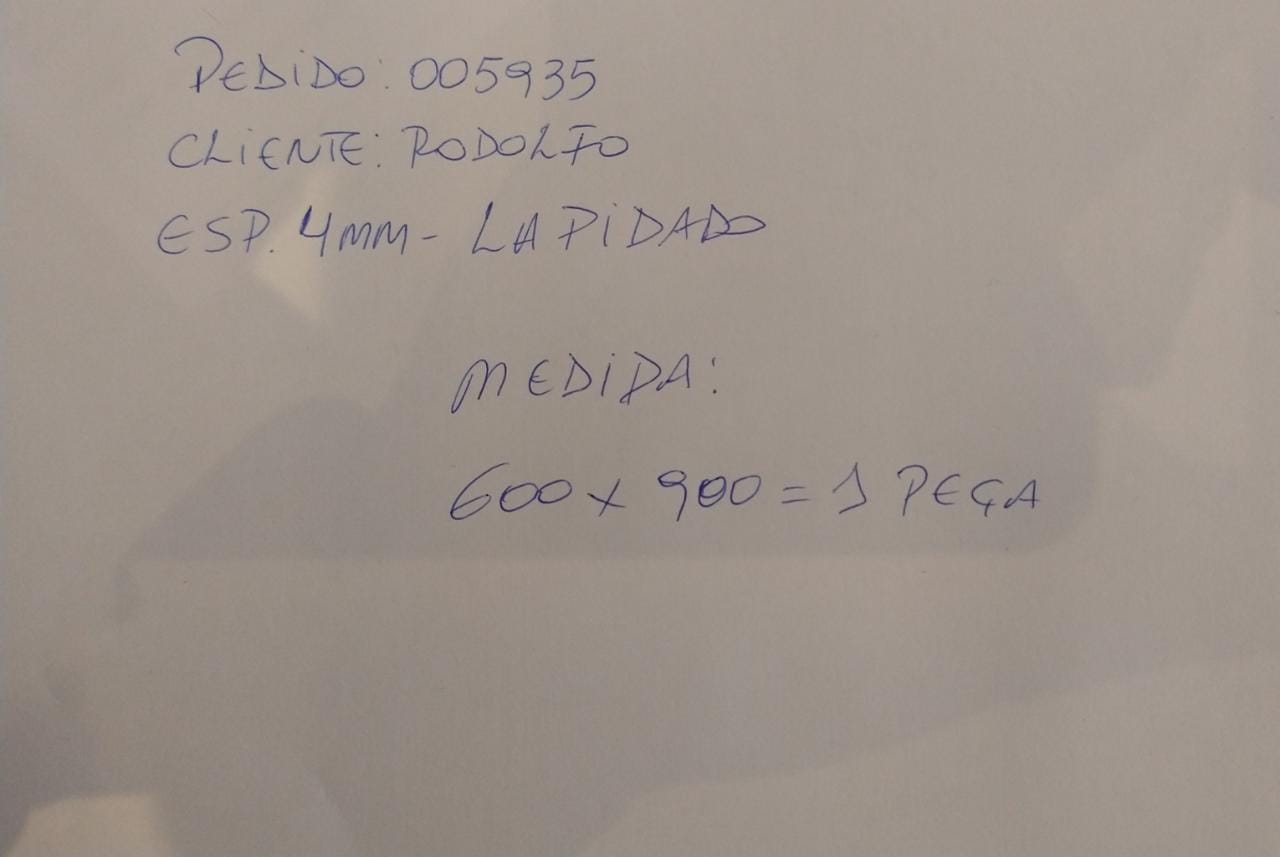 PEDIDO: 005935
CLIENTE: RODOLFO
ESP. 4MM - LAPIDADO
MEDIDA:
600 x 900 = 1 PEÇA